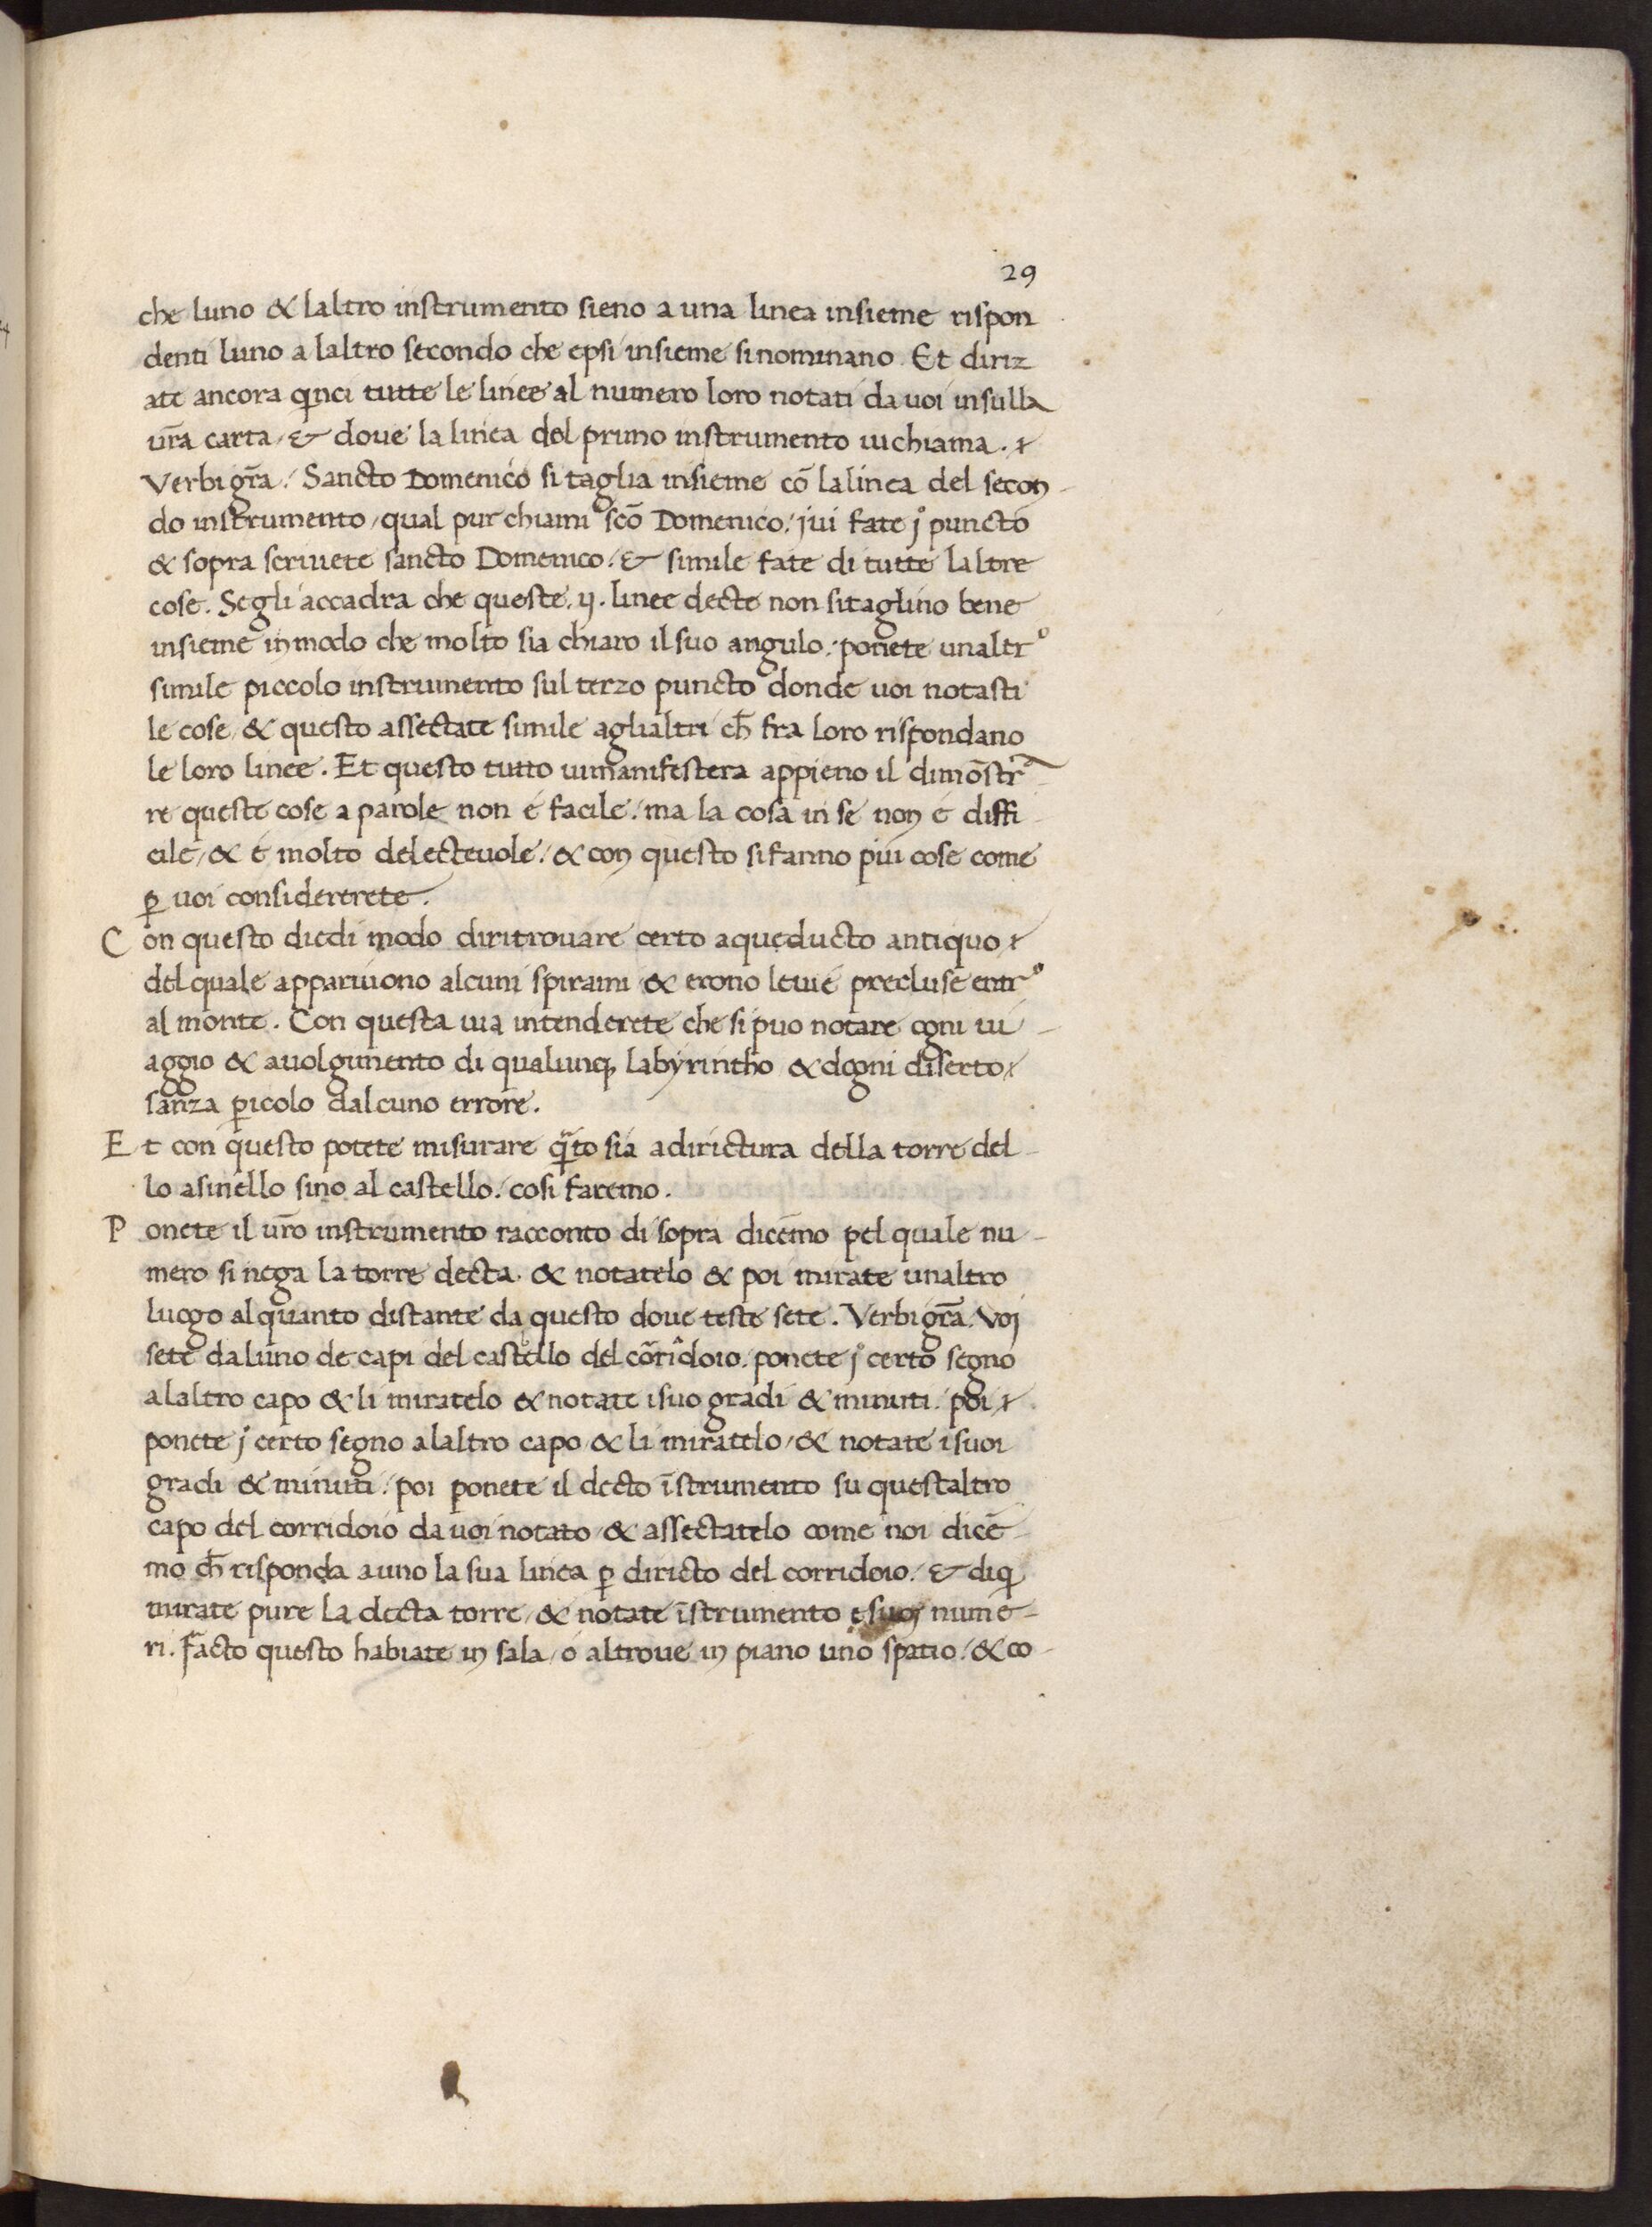 29
che luno & laltro instrumento sieno a una linea insieme rispon
denti luno a laltro secondo che epsi insieme si nominano. Et diriz
ate ancora q̄nci tutte le linee al numero loro notati da uoi insulla
ur̄a carta / & doue la linea del primo instrumento ui chiama.
Verbi gr̄a / Sancto Domenico si taglia insieme cō la linea del secon
do instrumento / qual pur chiami scō Domenico / iui fate j° puncto
& sopra scriuete sancto Domenico / & simile fate di tutte laltre
cose. Segli accadra che queste .ij. linee decte non si taglino bene
insieme in modo che molto sia chiaro il suo angulo / ponete unaltr°
simile piccolo instrumento sul terzo puncto donde uoi notasti
le cose / & questo assectate simile aglialtri ch̄ fra loro rispondano
le loro linee. Et questo tutto ui manifestera appieno il dimōstra
re queste cose a parole non é facile / ma la cosa in se non é diffi
cile / & é molto delecteuole / & con questo si fanno piu cose come
ꝑ uoi considererete.
Con questo diedi modo di ritrouare certo aqueducto antiquo
del quale appariuono alcuni spirami & erono le uie precluse entr°
al monte. Con questa uia intenderete che si puo notare ogni ui
aggio & auolgimento di qualunq, labyrintho & dogni diserto
sanza ꝑicolo dalcuno errore.
Et con questo potete misurare q̄to sia a dirictura della torre del
lo asinello sino al castello / cosi faremo.
Ponete il ur̄o instrumento racconto di sopra dicēmo pel quale nu
mero si nega la torre decta. & notatelo & poi mirate unaltro
luogo alquanto distante da questo doue teste sete. Verbi gr̄a. Voi
sete da luno de capi del castello del corridoio. ponete j° certo segno
a laltro capo & li miratelo & notate i suo gradi & minuti. poi
ponete j° certo segno a laltro capo & li miratelo / & notate i suoi
gradi & minuti / poi ponete il decto īstrumento su questaltro
capo del corridoio da uoi notato / & assectatelo come noi dicē
mo ch̄ risponda a uno la sua linea ꝑ diricto del corridoio / & di q̄
mirate pure la decta torre / & notate īstrumento e suoi nume
ri. Facto questo habiate in sala / o altroue in piano uno spatio / & co